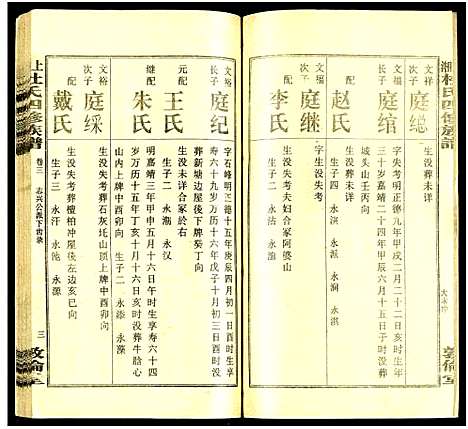 湘杜氏四修族譜
庭緦
生没葬未详
文福
次子
庭綰
字失考明正德九年甲戌二月二十二日亥时生享寿
三十岁嘉靖二十四年甲寅六月十五日子时没葬
城头山壬丙向
配
赵氏
生没失考葬未详
生子四 永淇 永湛
文福
三子
庭继
生没失考夫妇合冢阿婆山
配
李氏
生子二 永法 永渔
上杜氏四修族譜
卷三
志兴公派下齿录
三
敦倫堂
文裕
长子
庭纪
字石峰明正德十五年庚辰四月初一日时生享
寿六十九岁万历十六年戊子十月初三日酉时没
葬新塘边屋后下牌癸丁向
元配
王氏
生没未详合冢於右
生子二 永瀚 永汉
继配
朱氏
明嘉靖三年甲申五月十六日午时生享寿六十四
岁万历十五年丁亥十月十六日时没葬牛胎心
山内上牌中酉卯向 生子二 永 永藻
文裕
次子
庭綵
生没失考葬石灰坵山顶上牌中酉卯向
配
戴氏
生没失考葬檀柏冲屋后左边亥巳向
生子三 永汗 永沲 永源
敦倫堂